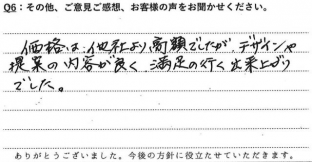 Q6:その他、ご意見ご感想、お客様の声をお聞かせください。
価格は、他社より高額でしたが、デザインや
提案の内容が良く、満足の行く出来上がり
でした。
ありがとうございました。今後の方針に役立たせていただきます。